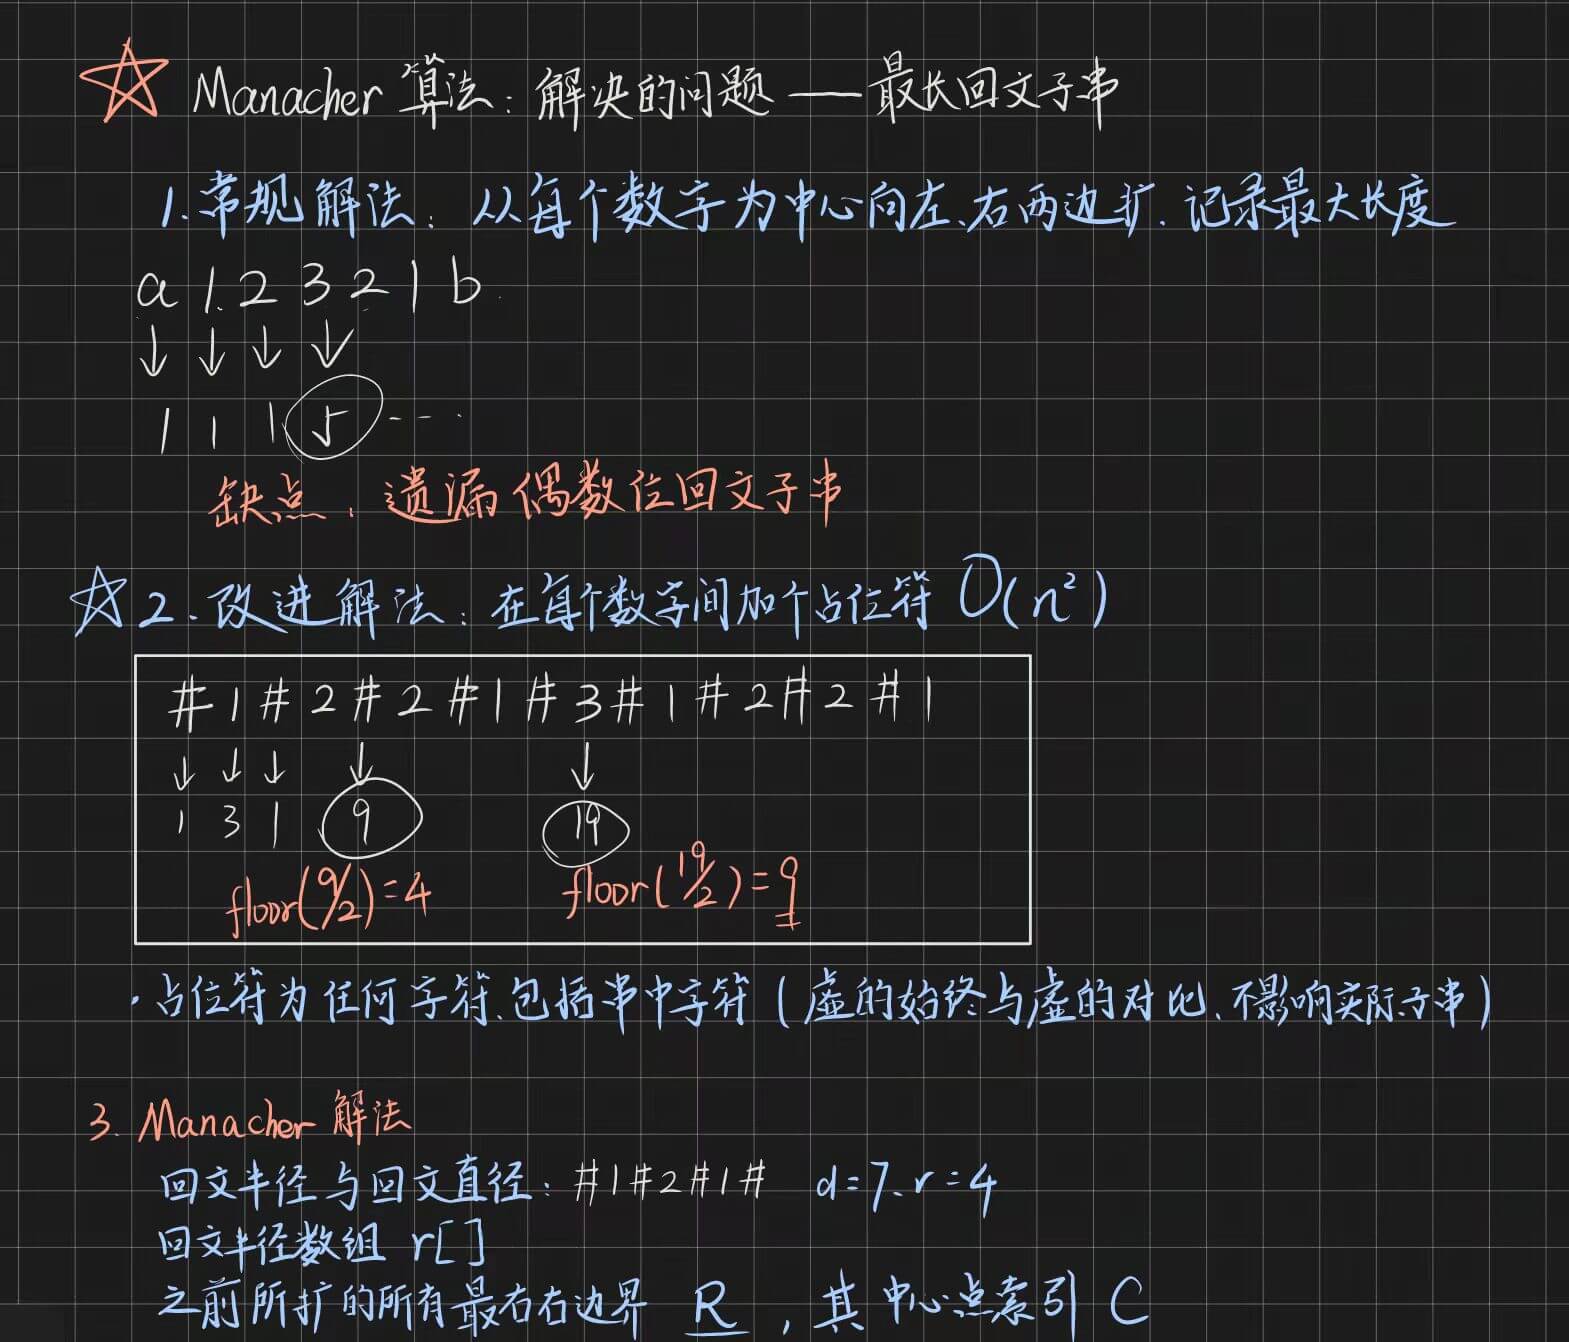 Manacher 算法：解决的问题 —— 最长回文子串
1.常规解法：从每个数字为中心向左、右两边扩.记录最大长度
a 1 2 3 2 1 b
↓ ↓ ↓ ↓
1 1 1 5 ...
缺点：遗漏偶数位回文子串
2.改进解法：在每个数字间加个占位符 O(n²)
# 1 # 2 # 2 # 1 # 3 # 1 # 2 # 2 # 1
↓ ↓ ↓ ↓ ↓
1 3 1 9 19
floor(9/2)=4 floor(19/2)=9
·占位符为任何字符、包括串中字符(虚的始终与虚的对比、不影响实际子串)
3. Manacher 解法
回文半径与回文直径：#1#2#1# d=7、r=4
回文半径数组 r[]
之前所扩的所有最右右边界 R，其中心点索引 C